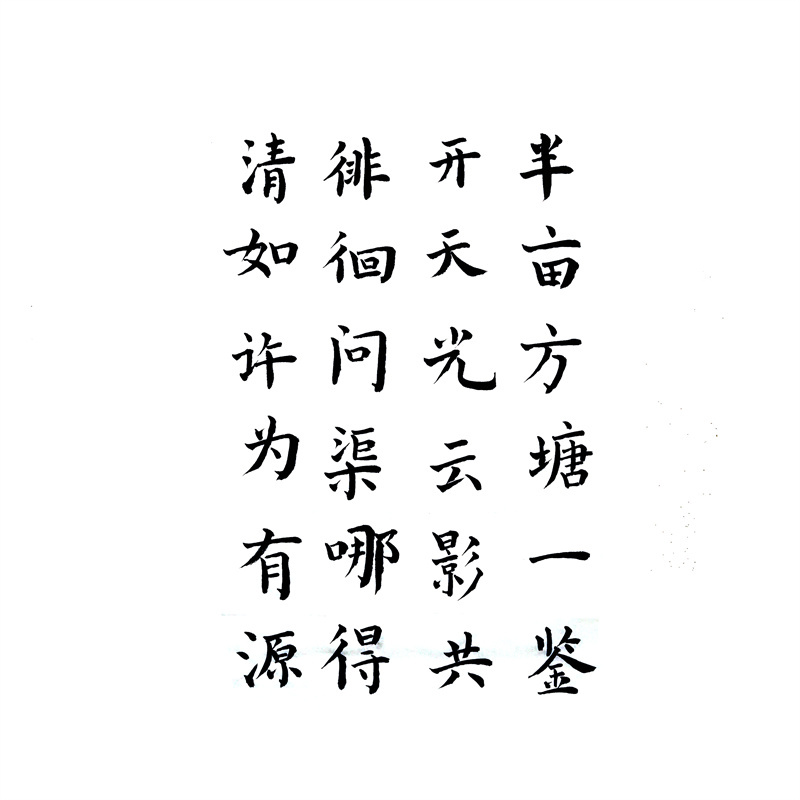 半亩方塘一鉴
开天光云影共
徘徊问渠哪得
清如许为有源